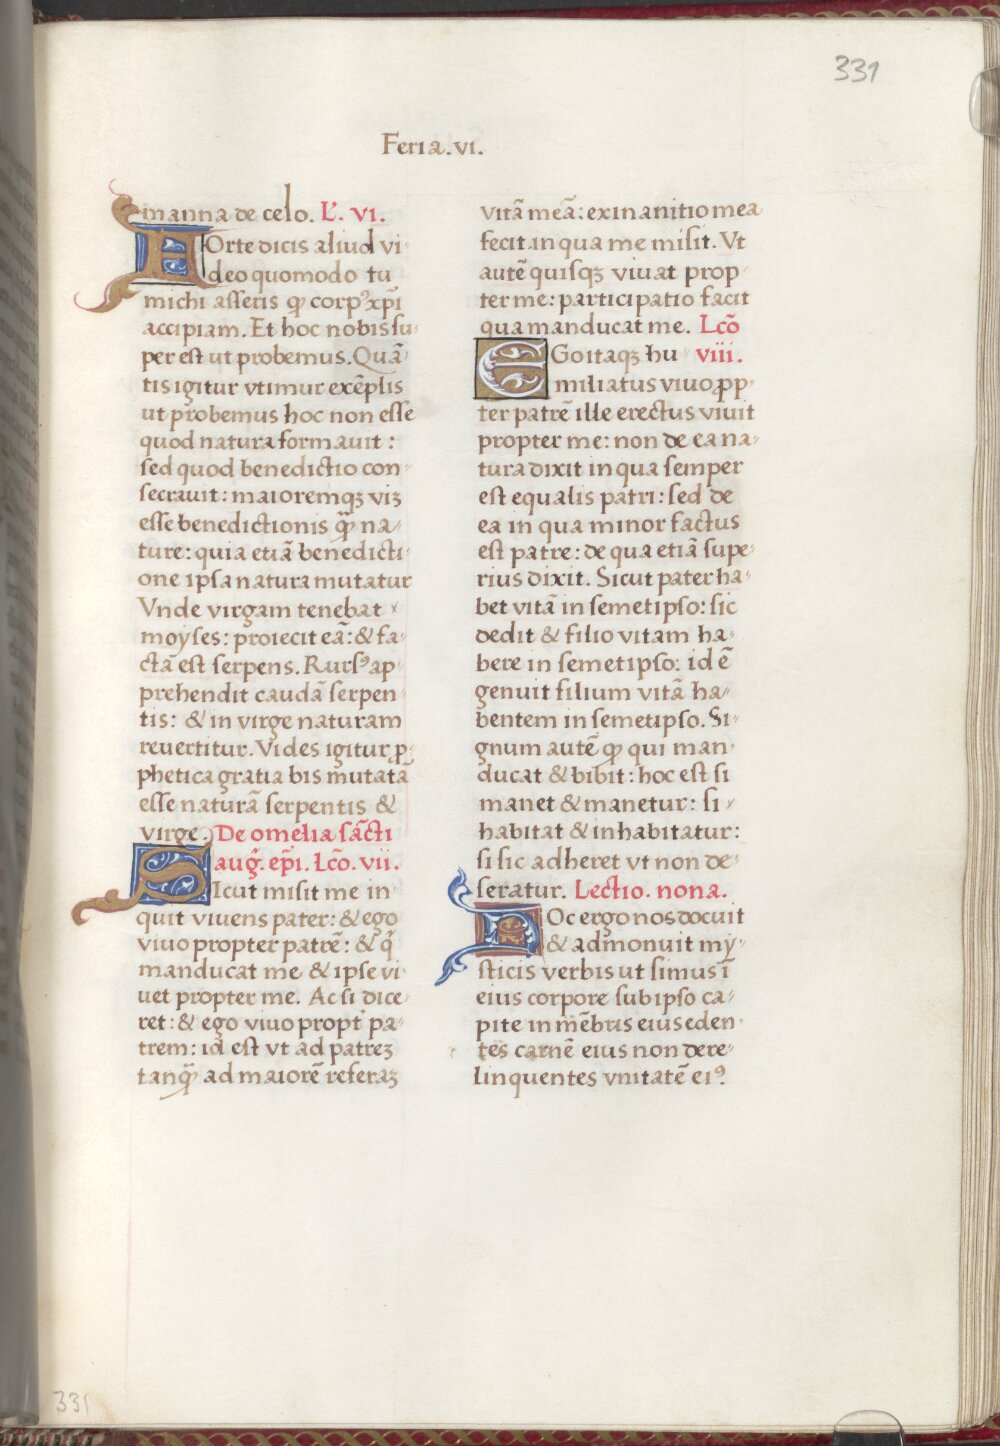 331
Feria.vi.
manna de celo. L'. vi.
FOrte dicis aliud vi
deo quomodo tu
michi asseris ꝙ corpꝰ xp̄i
accipiam. Et hoc nobis su
per est ut probemus. Quā
tis igitur vtimur exēplis
ut probemus hoc non esse
quod natura formauit :
sed quod benedictio con
secrauit : maioremqꝫ viꝫ
esse benedictionis qꝫ̄ na
ture: quia etiā benedicti
one ipsa natura mutatur
Vnde virgam tenebat
moyses: proiecit eā: & fa
ctā est serpens. Rursꝰ ap
prehendit caudā serpen
tis: & in virge naturam
reuertitur. Vides igitur ꝓ
phetica gratia bis mutatā
esse naturā serpentis &
virge. De omelia sācti
aug̃. ep̄i. Lcō. vii.
SIcut misit me in
quit viuens pater: & ego
viuo propter patrē: & q̄
manducat me & ipse vi
uet propter me. Ac si dice
ret: & ego viuo propt' pa
trem: id est vt ad patreꝫ
tanqꝫ̄ ad maiorē referaꝫ
vitā meā: exinanitio mea
fecit in qua me misit. Vt
autē quisqꝫ viuat prop
ter me: participatio facit
qua manducat me. Lcō
EGo itaqꝫ hu viii.
miliatus viuo ꝓp
ter patrē ille erectus viuit
propter me: non de ea na
tura dixit in qua semper
est equalis patri: sed de
ea in qua minor factus
est patre: de qua etiā supe
rius dixit. Sicut pater ha
bet vitā in semetipso: sic
dedit & filio vitam ha
bere in semetipso: id ē
genuit filium vitā ha
bentem in semetipso. Si
gnum autē ꝙ qui man
ducat & bibit: hoc est si
manet & manetur: si
habitat & inhabitatur:
si sic adheret vt non de
seratur. Lectio. nona.
HOc ergo nos docuit
& admonuit my
sticis verbis ut simus ī
eius corpore sub ipso ca
pite in mēbris eius eden
tes carnē eius non dere
linquentes vnitatē eiꝰ.
331